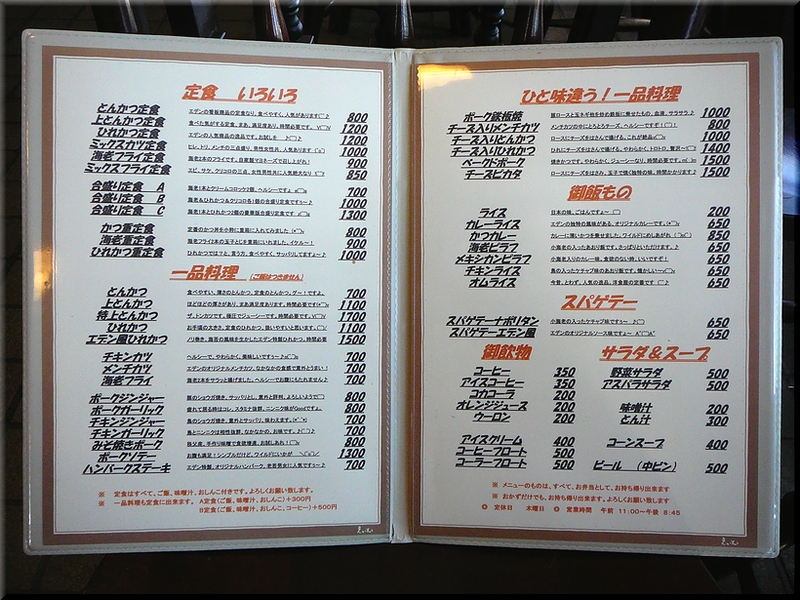 定食 いろいろ
とんかつ定食 エデンの看板商品の定食なり、食べやすく、人気があります 800
上とんかつ定食 食べた気がする定食、まあ、満足度あり、時間必要です。 1200
ひれかつ定食 エデンの人気商品の逸品です。お試しを 1200
ミックスカツ定食 ヒレ、トリ、メンチの三点盛り、男性女性共、人気あります 1000
海老フライ定食 海老2本のフライです。自家製マヨネーズで召し上がれ! 900
ミックスフライ定食 エビ、サケ、クリコロの三点、女性男性共に人気絶大なり 850
合盛り定食 A 海老1本とクリームコロッケ2個、ヘルシーです♪ 700
合盛り定食 B 海老&ひれかつ&クリコロ各1個の合盛り定食です~♪ 1000
合盛り定食 C 海老1本とひれかつ2個の豪華版合盛り定食です 1300
かつ重定食 定番のかつ丼を小粋に重箱に入れてみました 800
海老重定食 海老フライ2本の玉子とじを重箱にいれました。イケルー! 900
ひれかつ重定食 ひれかつでは?と、言う方、食べやすく、サッパリしてますよ~♪ 1000
一品料理 (ご飯はつきません)
とんかつ 食べやすい、薄さのとんかつ、定食のとんかつ。グ~!ですよ。 700
上とんかつ ほどほどの厚さがあり、まあ満足あります。時間必要です 1100
特上とんかつ ザ、トンカツです。極圧でジューシーです。時間必要です。 1700
ひれかつ お手頃の大きさ、定食のひれかつ、良いやすいと思います。 1100
エデン風ひれかつ ノリ巻き、海苔の風味を生かしたエデン特製ひれかつ、時間必要 1500
チキンカツ ヘルシーで、やわらかく、美味しいです~♪ 700
メンチカツ エデンのオリジナルメンチカツ、なかなかの食感で意外とうまい! 700
海老フライ 海老2本をサラッと揚げました、ヘルシーでお腹にもたれません♪ 700
ポークジンジャー 豚のショウガ焼き、サッパリとし、意外と評判、よろしいようで 800
ポークガーリック 疲れて居る時はコレ、スタミナ抜群、ニンニク味がGoodですよ。 800
チキンジンジャー 鳥のショウガ焼き、意外とサッパリ、味わえます。 700
チキンガーリック 鳥とニンニクは相性抜群、なかなかの、お味です。 700
みそ焼きポーク 秩父産、手作り味噌で食欲増進、お試しあれ! 800
ポークソテー お腹も満足!シンプルだけど、ワイルドにいかが 1300
ハンバークステーキ エデン特製、オリジナルハンバーグ、老若男女に人気です~♪ 700
※ 定食はすべて、ご飯、味噌汁、おしんこ付きです。よろしくお願い致します。
※ 一品料理も定食に出来ます。 A定食(ご飯、味噌汁、おしんこ)+300円
B定食(ご飯、味噌汁、おしんこ、コーヒー)+500円
ひと味違う!一品料理
ポーク鉄板焼 豚ロースと玉ネギ他を秒の鉄板に乗せたもの、血液、サラサラ♪ 1000
チーズ入りメンチカツ メンチカツの中にとろうとチーズ、ヘルシーですぞ! 800
チーズ入りとんかつ ロースにチーズをはさんで揚げる、これが絶品 1000
チーズ入りひれかつ ひれにチーズをはさんで揚げる、やわらかく、トロトロ、贅沢~ 1400
ベークドポーク 焼きかつです。やわらかく、ジューシーなり、時間必要です。 1500
チーズピカタ ロースにチーズをはさみ、玉子で焼く独特の味、時間かかります♪ 1500
御飯もの
ライス 日本の味、ごはんですょ~ 200
カレーライス エデンの独特の風味がある、オリジナルカレーです。 650
かつカレー カレーに薄いかつを乗せました、ワイルドにめしあがれ 850
海老ピラフ 小海老の入ったあおり飯です。さっぱりといただけます。♪ 650
メキシカンピラフ 小海老入りのカレー味、食欲のない時、いいですぞ! 650
チキンライス 鳥の入ったケチャプ味のあおり飯です。懐かしい~ 650
オムライス 今昔、とわず、人気の逸品、洋食屋の定番です 650
スパゲテー
スパゲテーナポリタン 小海老の入ったケチャプ味です~♪ 650
スパゲテーエデン風 エデンのオリジナルソース味ですょ~ 650
御飲物
コーヒー 350
アイスコーヒー 350
コカコーラ 200
オレンジジュース 200
ウーロン 200
アイスクリーム 400
コーヒーフロート 500
コーラーフロート 500
サラダ&スープ
野菜サラダ 500
アスパラサラダ 500
味噌汁 200
とん汁 300
コーンスープ 400
ビール (中ビン) 500
※ メニューのものは、すべて、お弁当として、お持ち帰り出来ます
※ おかずだけでも、お持ち帰り出来ます、よろしくお願い致します
◎ 定休日 木曜日 ◎ 営業時間 午前 11:00~午後 8:45